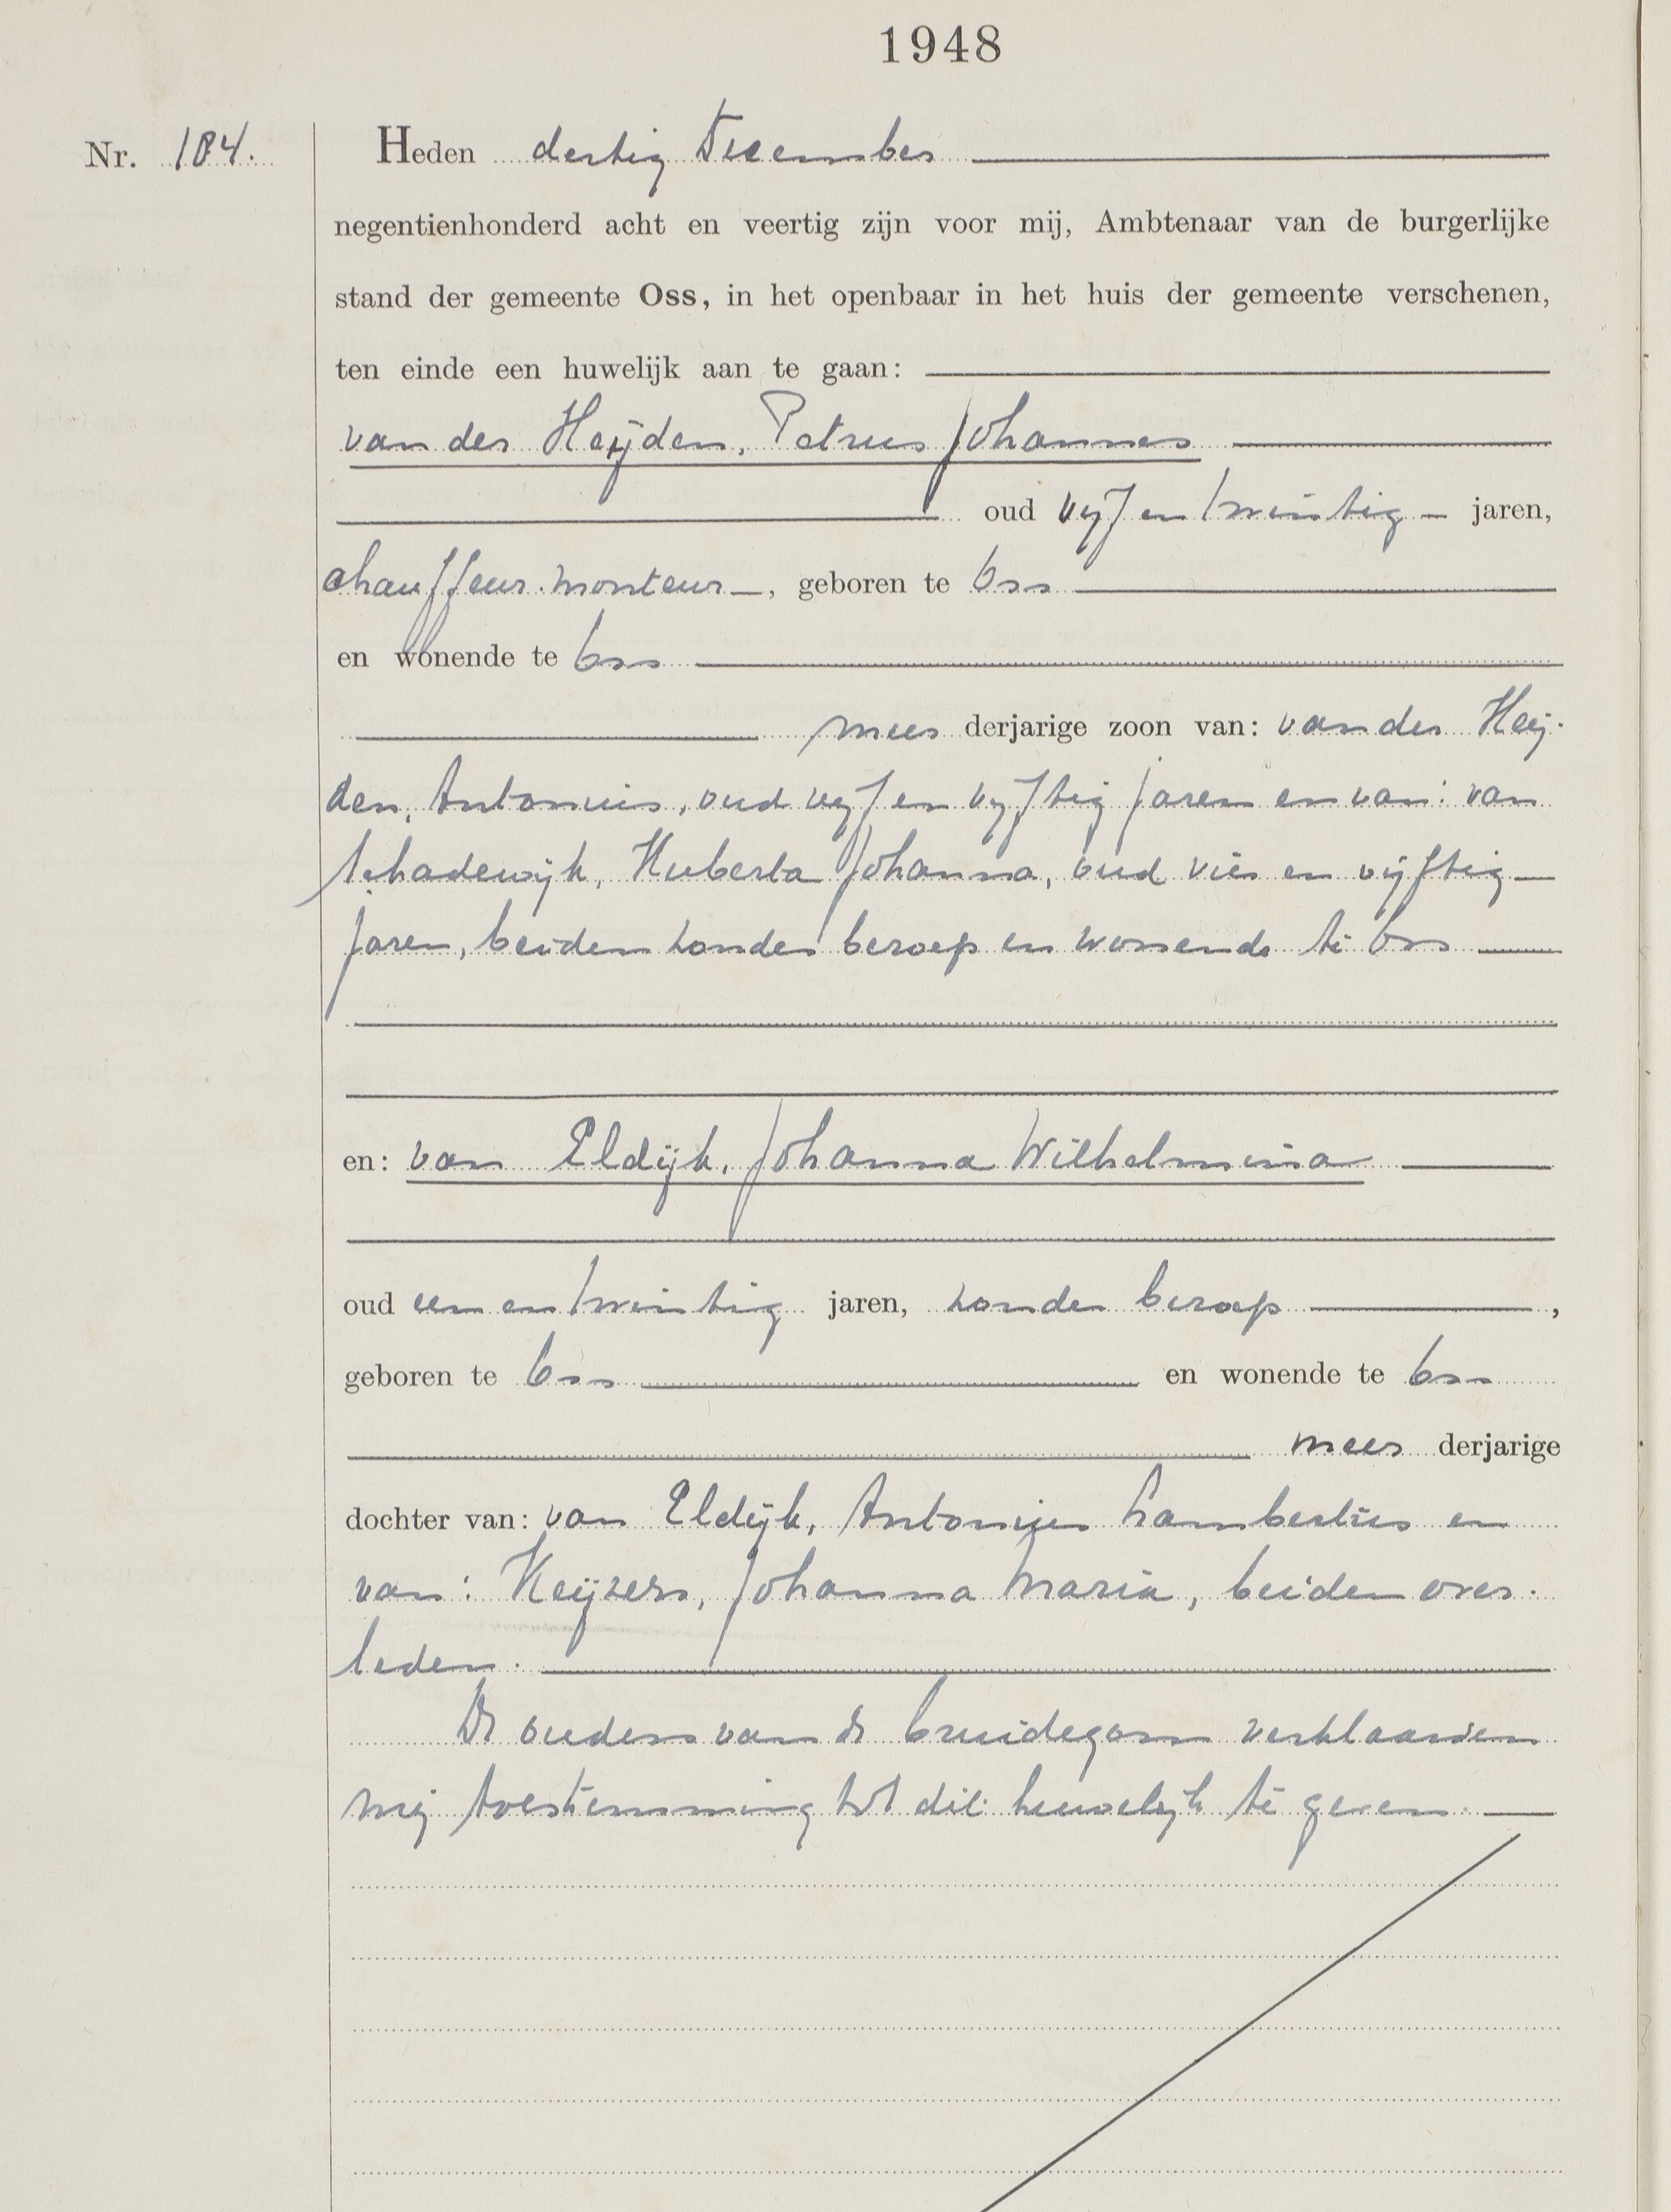 1948
Nr. 184.
Heden dertig December
negentienhonderd acht en veertig zijn voor mij, Ambtenaar van de burgerlijke
stand der gemeente Oss, in het openbaar in het huis der gemeente verschenen,
ten einde een huwelijk aan te gaan:
van der Heijden, Petrus Johannes
oud vijf en twintig — jaren,
chauffeur-monteur —, geboren te Oss
en wonende te Oss
meer derjarige zoon van: van der Heij-
den, Antonius, oud vijf en vijftig jaren en van: van
Schadewijk, Huberta Johanna, oud vier en vijftig —
jaren, beiden zonder beroep en wonende te Oss
en: van Eldijk, Johanna Wilhelmina
oud een en twintig jaren, zonder beroep ,
geboren te Oss en wonende te Oss
meer derjarige
dochter van: van Eldijk, Antonius Lambertus en
van: Keijzers, Johanna Maria, beiden over-
leden.
De ouders van de bruidegom verklaarden
mij toestemming tot dit huwelijk te geven.